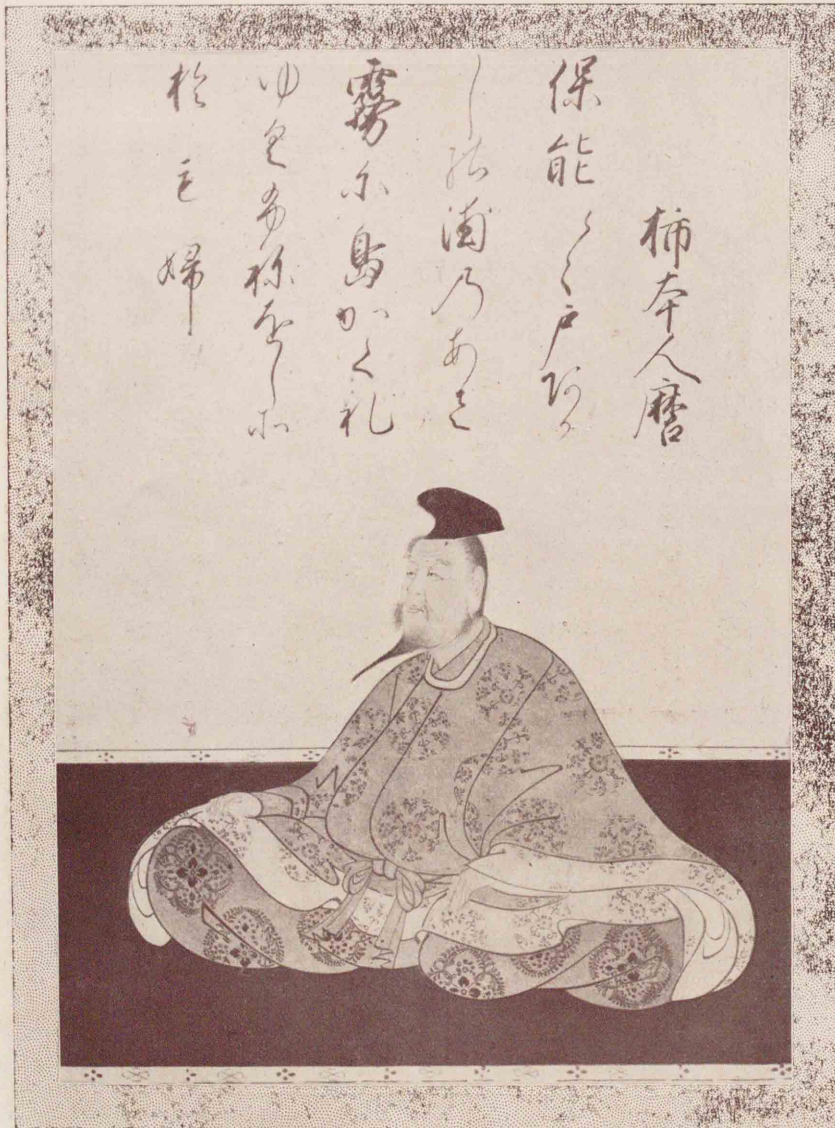 柿本人麿
保能〱戸阿か
し能浦乃あさ
霧尓島かく礼
ゆく布祢をしそ
於も婦